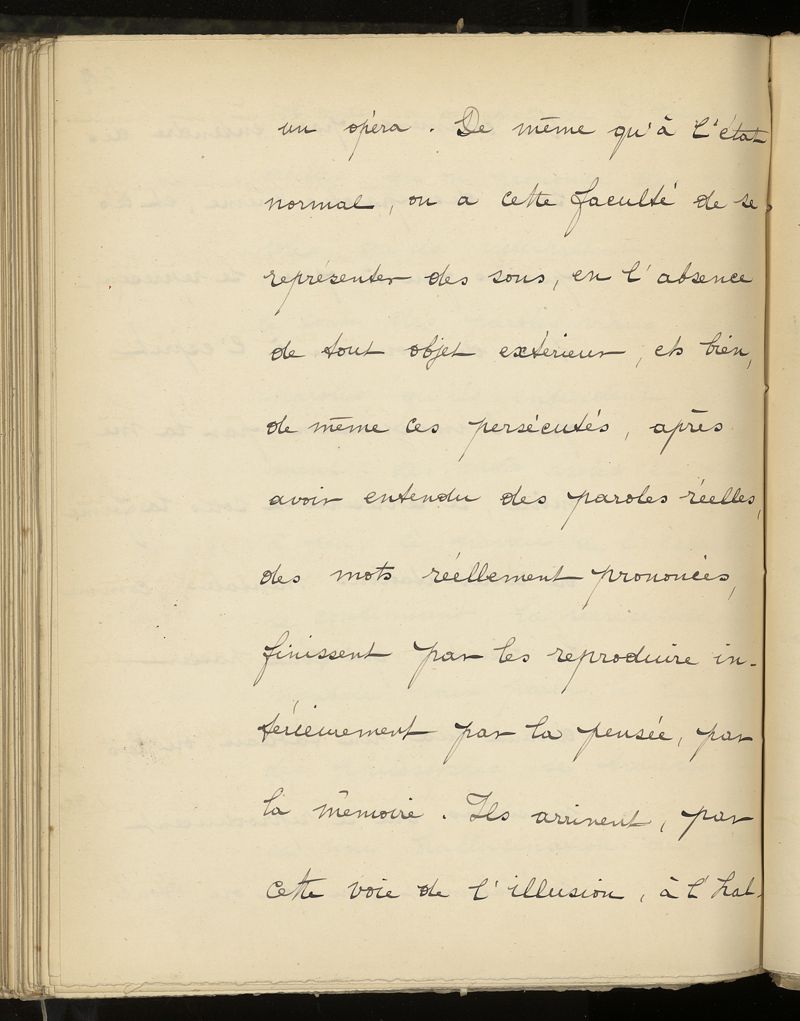 un opéra. De même qu'à l'état
normal, on a cette faculté de se
représenter des sons, en l'absence
de tout objet extérieur, eh bien,
de même ces persécutés, après
avoir entendu des paroles réelles,
des mots réellement prononcés,
finissent par les reproduire in-
térieurement par la pensée, par
la mémoire. Ils arrivent, par
cette voie de l'illusion, à l'hal-